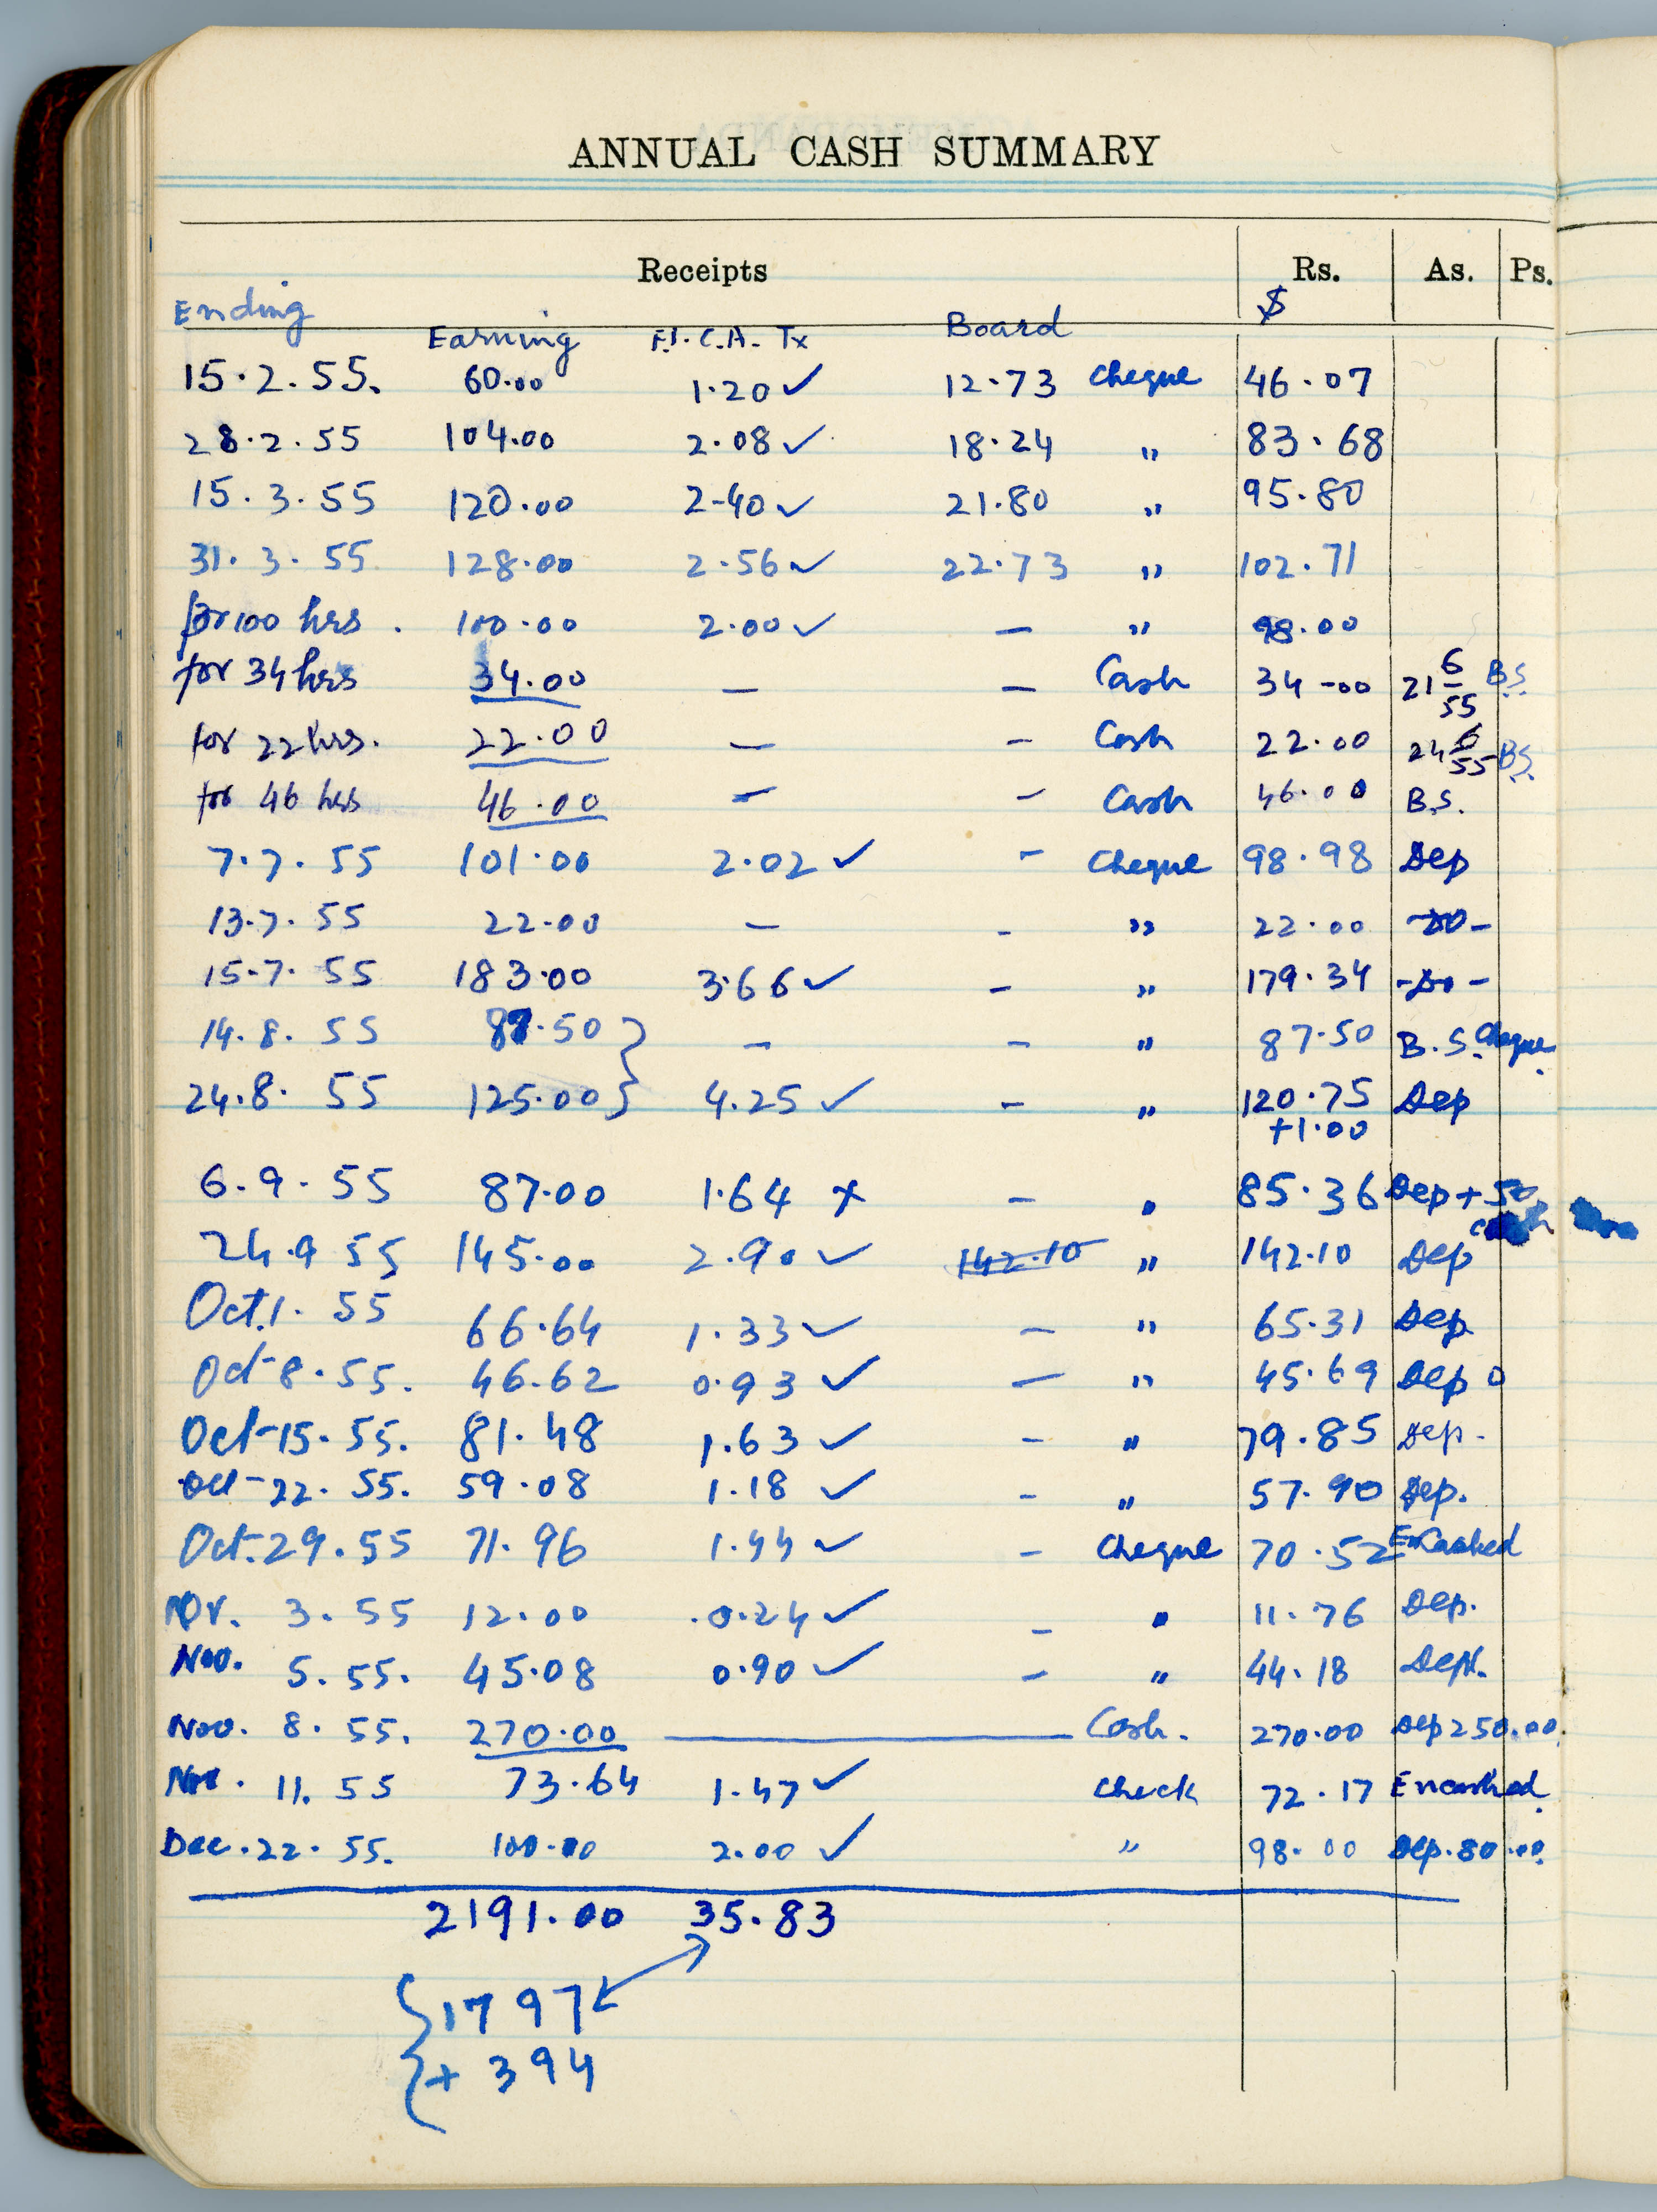 ANNUAL CASH SUMMARY
Receipts Rs. As. Ps.
Ending Earning F.I.C.A. Tx Board $
15.2.55. 60.00 1.20 ✓ 12.73 Cheque 46.07
28.2.55 104.00 2.08 ✓ 18.24 " 83.68
15.3.55 120.00 2-40 ✓ 21.80 " 95.80
31.3.55 128.00 2.56 ✓ 22.73 " 102.71
for 100 hrs. 100.00 2.00 ✓ – " 98.00
for 34 hrs 34.00 – – Cash 34-00 21 6/55 B.S.
for 22 hrs. 22.00 – – Cash 22.00 24 6/55 B.S.
for 46 hrs 46.00 – – Cash 46.00 B.S.
7.7.55 101.00 2.02 ✓ – Cheque 98.98 Dep
13.7.55 22.00 – – " 22.00 -Do-
15-7.55 183.00 3.66 ✓ – " 179.34 -Do-
14.8.55 87.50 } – – " 87.50 B.S. Cheque
24.8.55 125.00 } 4.25 ✓ – " 120.75 Dep
+1.00
6.9.55 87.00 1.64 x – " 85.36 Dep + 50
cash
24.9 55 145.00 2.90 ✓ 142.10 " 142.10 Dep
Oct.1.55 66.64 1.33 ✓ – " 65.31 Dep
Oct-8.55. 46.62 0.93 ✓ – " 45.69 Dep
Oct-15.55. 81.48 1.63 ✓ – " 79.85 Dep.
Oct-22.55. 59.08 1.18 ✓ – " 57.90 Dep.
Oct.29.55 71.96 1.44 ✓ – Cheque 70.52 Encashed
Nov. 3.55 12.00 .0.24 ✓ – " 11.76 Dep.
Nov. 5.55. 45.08 0.90 ✓ – " 44.18 Dep.
Nov. 8.55. 270.00 — Cash. 270.00 Dep 250.00.
Nov. 11.55 73.64 1.47 ✓ Check 72.17 Encashed.
Dec.22.55. 100.00 2.00 ✓ " 98.00 Dep.80.00.
2191.00 35.83
{1797
{+ 394